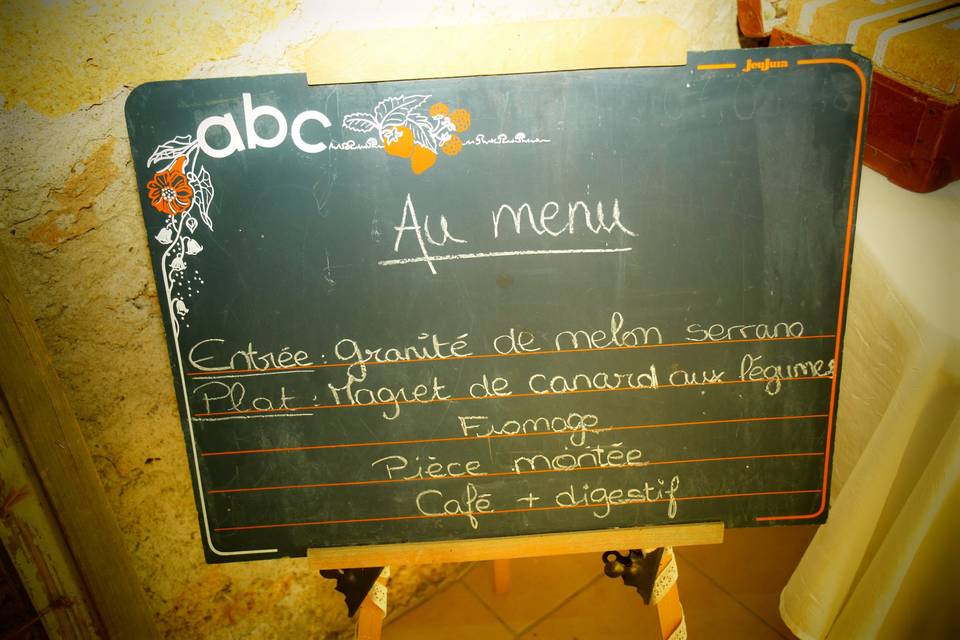 JeuJura
abc
Au menu
Entrée : granité de melon serrano
Plat : Magret de canard aux légumes
Fromage
Pièce montée
Café + digestif